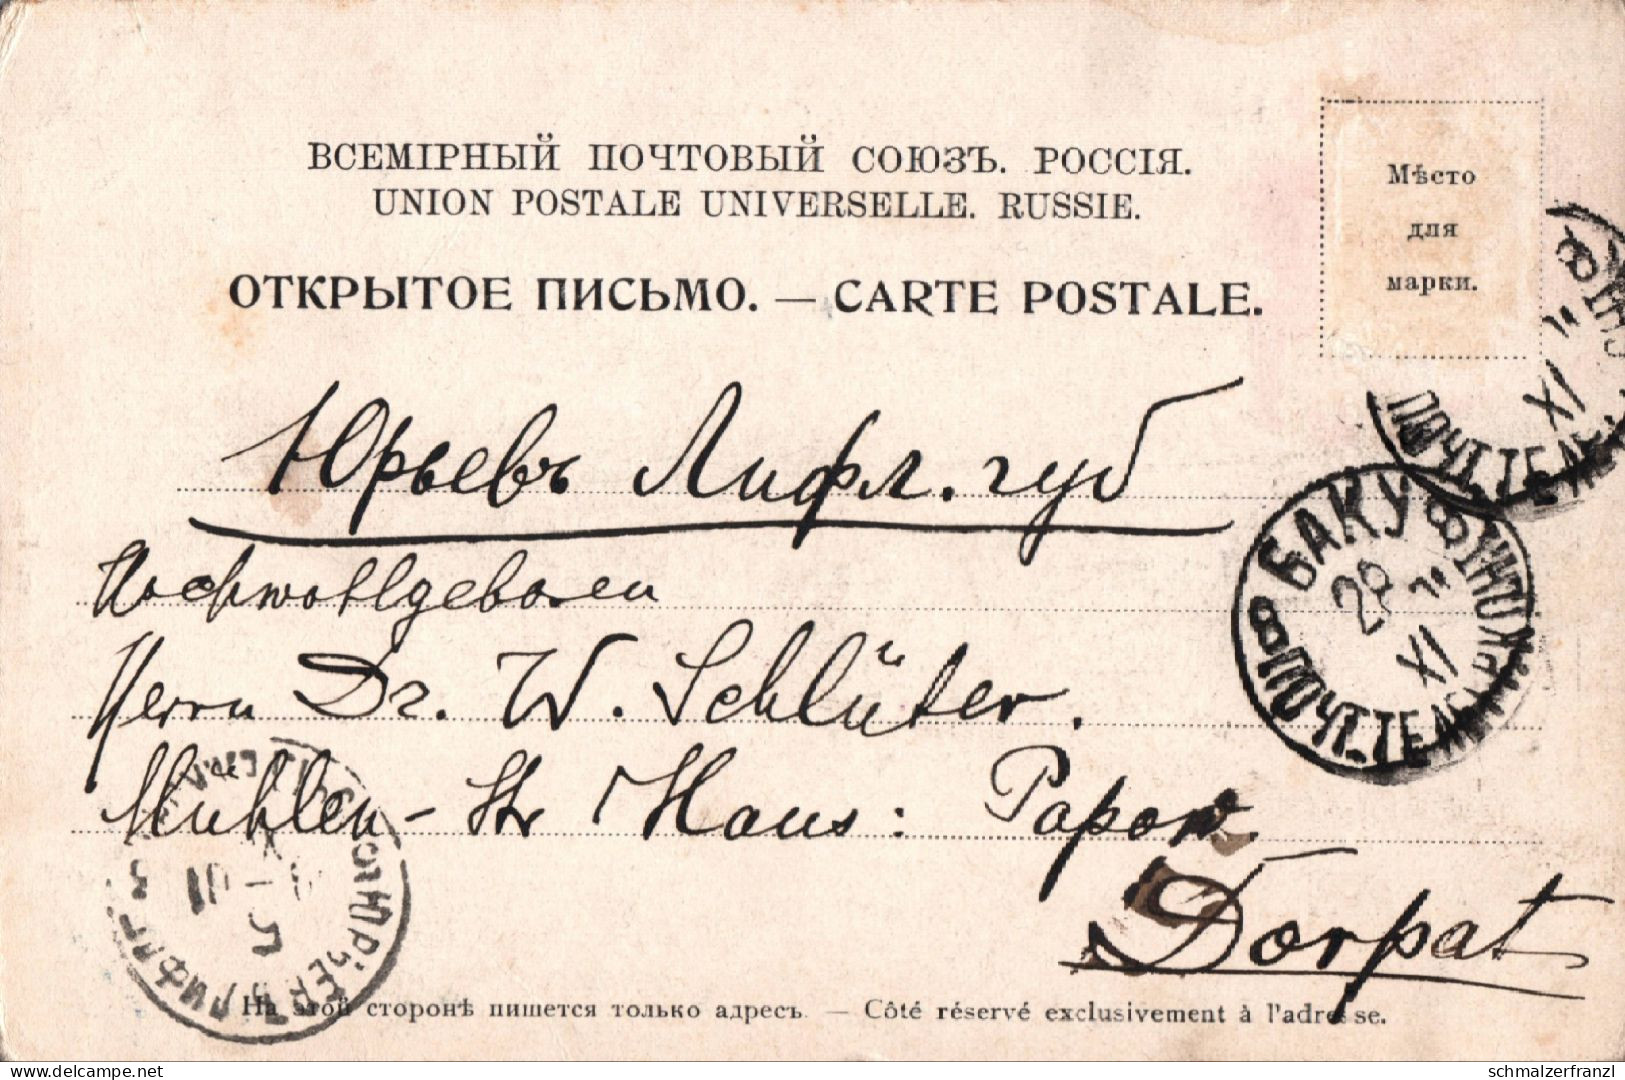 ВСЕМІРНЫЙ ПОЧТОВЫЙ СОЮЗЪ. РОССІЯ.
UNION POSTALE UNIVERSELLE. RUSSIE.
ОТКРЫТОЕ ПИСЬМО. — CARTE POSTALE.
Мѣсто
для
марки.
Юрьевъ Лифл. губ
Hochwohlgeboren
Herrn Dr. W. Schlüter.
Mühlen-Str Haus: Popow.
Dorpat
БАКУ
29
XI
ПОЧТ. ТЕЛ
XI
ПОЧТ. ТЕЛЕ
На этой сторонѣ пишется только адресъ. — Côté réservé exclusivement à l'adresse.
www.delcampe.net
schmalzerfranzl